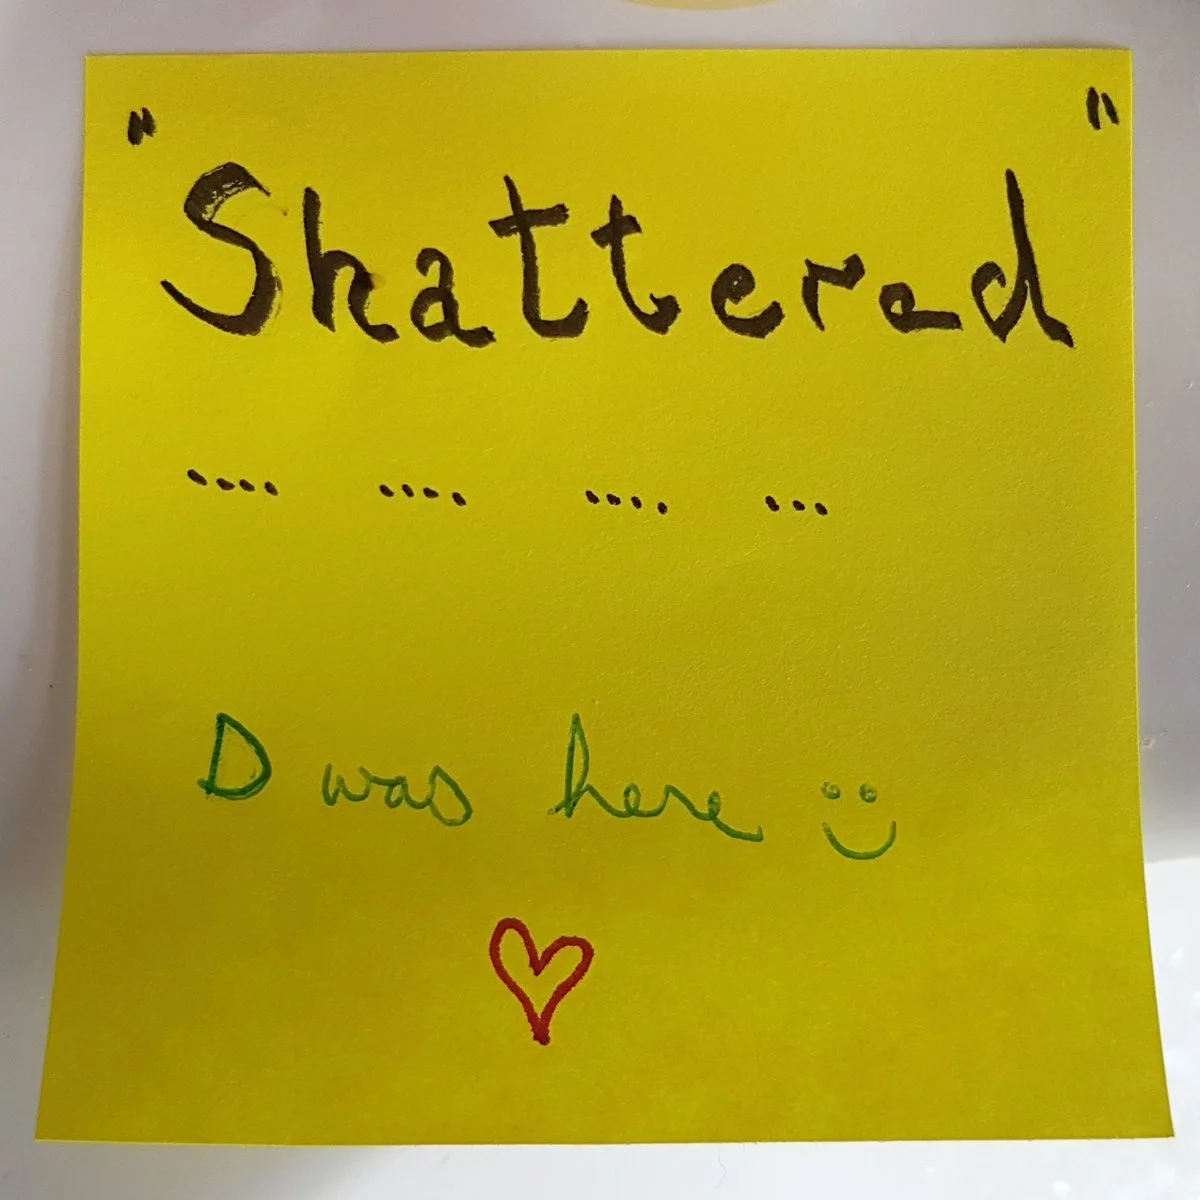 "Shattered"
.... .... .... ...
D was here :)